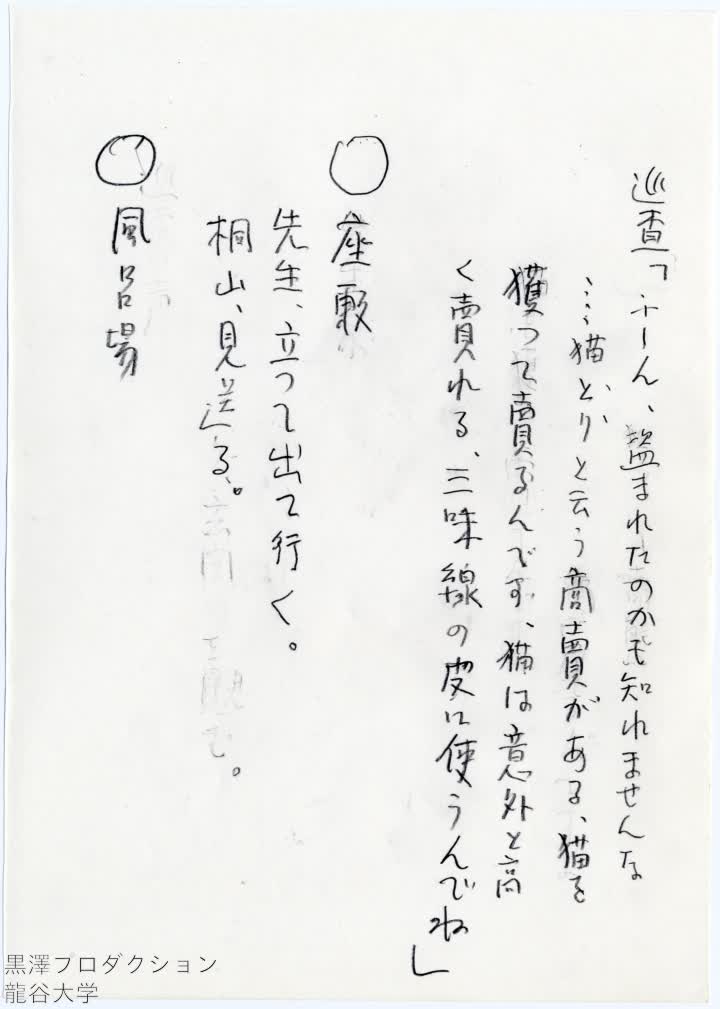 巡査「ふーん、盗まれたのかも知れませんな
……猫どりと云う商賣がある、猫を
獲って賣るんです、猫は意外と高
く賣れる、三味線の皮に使うんでね」
○座敷
先生、立って出て行く。
桐山、見送る。
○風呂場
黒澤プロダクション
龍谷大学